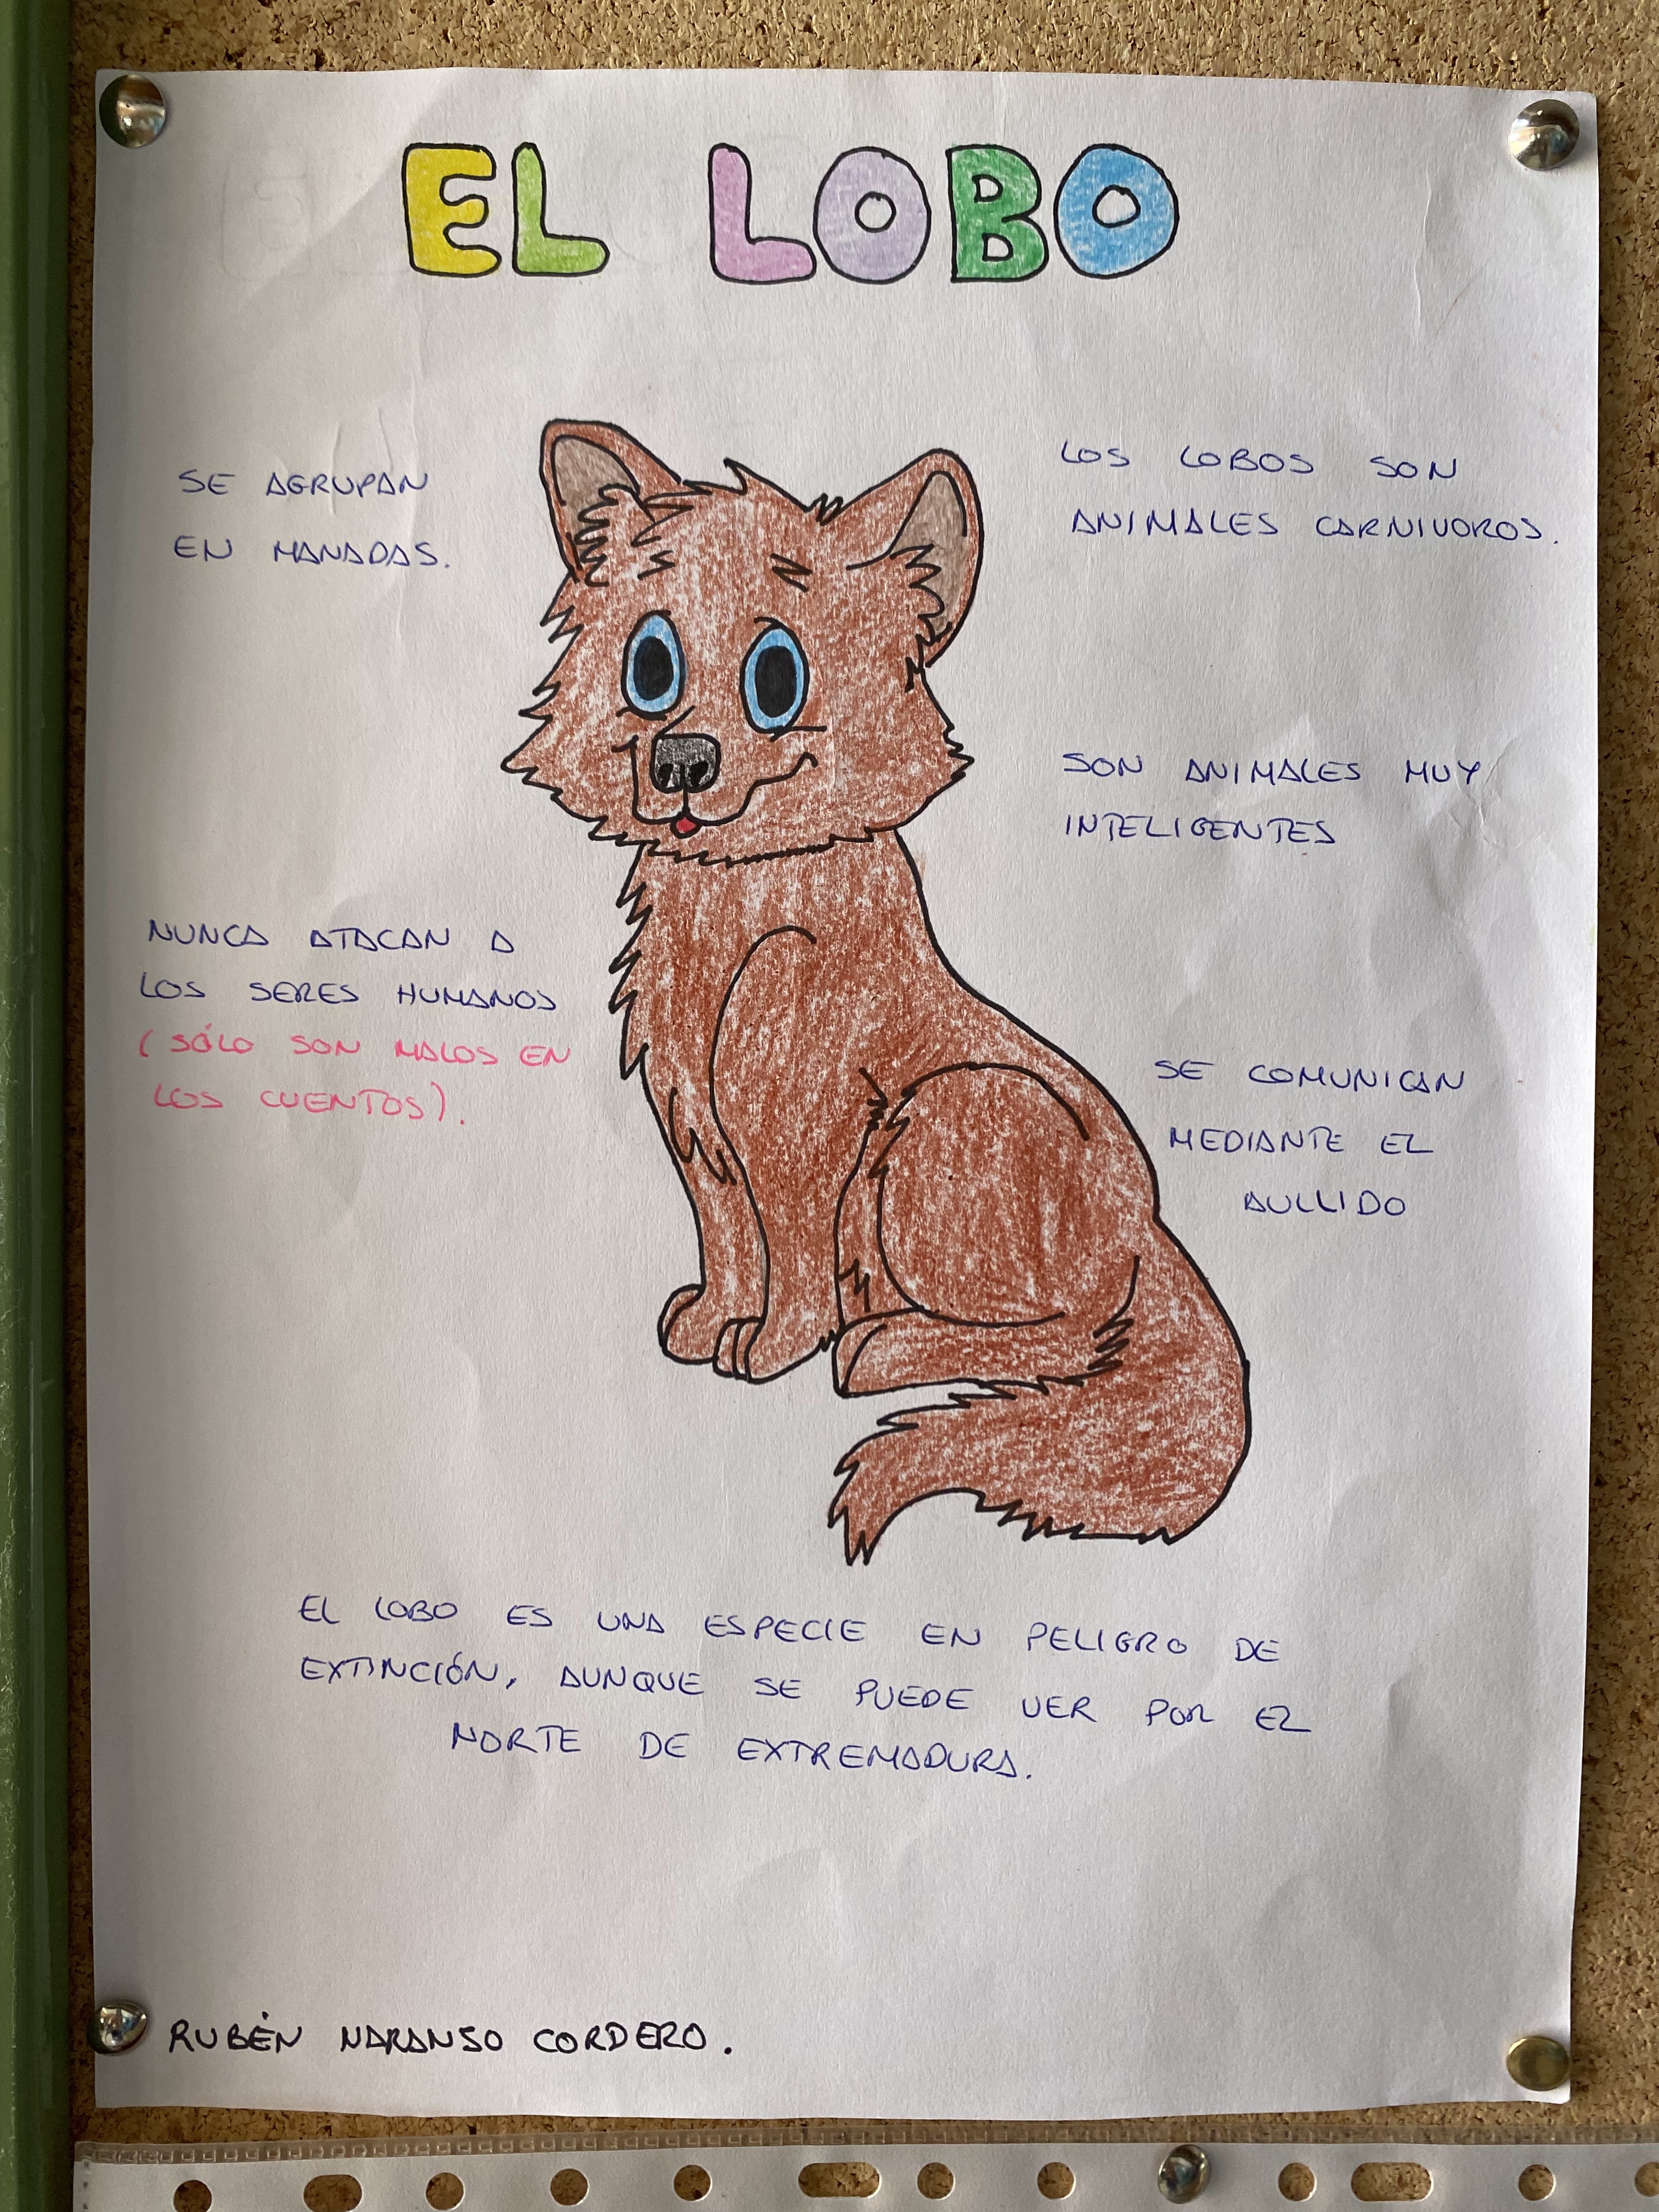 EL LOBO
SE AGRUPAN
EN MANADAS.
LOS LOBOS SON
ANIMALES CARNIVOROS.
SON ANIMALES MUY
INTELIGENTES
NUNCA ATACAN A
LOS SERES HUMANOS
(SÓLO SON MALOS EN
LOS CUENTOS).
SE COMUNICAN
MEDIANTE EL
AULLIDO
EL LOBO ES UNA ESPECIE EN PELIGRO DE
EXTINCIÓN, AUNQUE SE PUEDE VER POR EL
NORTE DE EXTREMADURA.
RUBÉN NARANJO CORDERO.